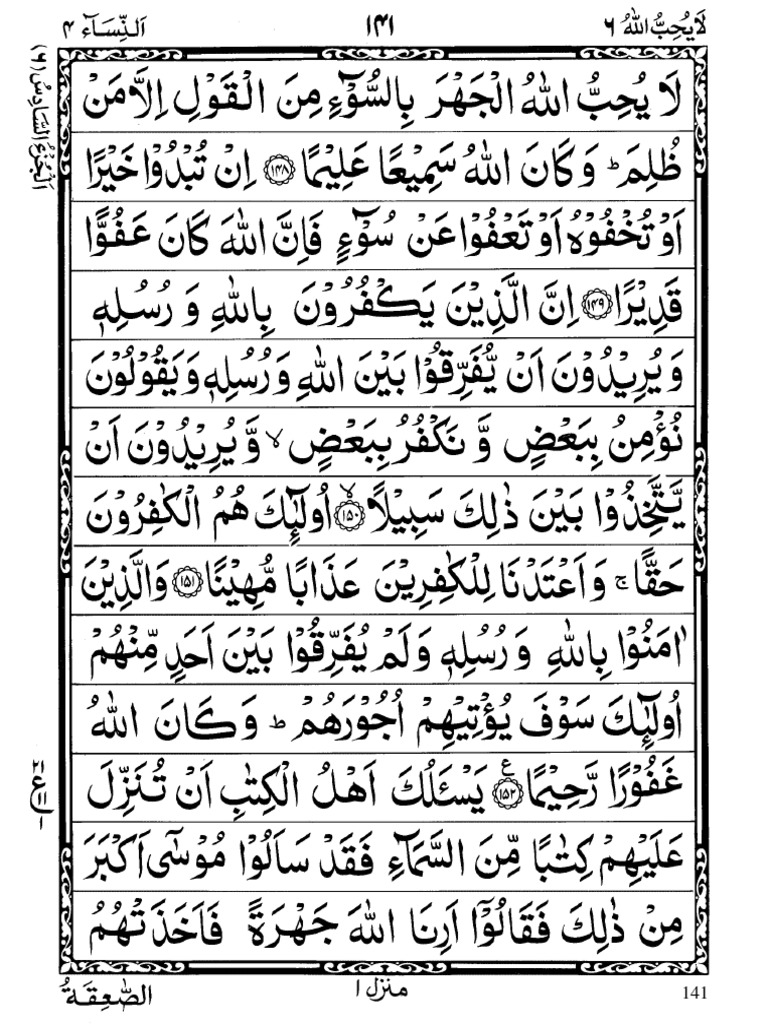 لَا يُحِبُّ اللّٰهُ ٦ ١۴١ اَلنِّسَآء ۴
اَلْجُزْءُ السَّادِسُ (٦)
لَا يُحِبُّ اللّٰهُ الْجَهْرَ بِالسُّوْٓءِ مِنَ الْقَوْلِ اِلَّا مَنْ
ظُلِمَ ؕ وَكَانَ اللّٰهُ سَمِيْعًا عَلِيْمًا ﴿١۴٨﴾ اِنْ تُبْدُوْا خَيْرًا
اَوْ تُخْفُوْهُ اَوْ تَعْفُوْا عَنْ سُوْٓءٍ فَاِنَّ اللّٰهَ كَانَ عَفُوًّا
قَدِيْرًا ﴿١۴٩﴾ اِنَّ الَّذِيْنَ يَكْفُرُوْنَ بِاللّٰهِ وَ رُسُلِهٖ
وَيُرِيْدُوْنَ اَنْ يُّفَرِّقُوْا بَيْنَ اللّٰهِ وَرُسُلِهٖ وَيَقُوْلُوْنَ
نُؤْمِنُ بِبَعْضٍ وَّ نَكْفُرُ بِبَعْضٍ ۙ وَّيُرِيْدُوْنَ اَنْ
يَّتَّخِذُوْا بَيْنَ ذٰلِكَ سَبِيْلًا ۙ﴿١۵٠﴾ اُولٰٓئِكَ هُمُ الْكٰفِرُوْنَ
حَقًّا ۚ وَاَعْتَدْنَا لِلْكٰفِرِيْنَ عَذَابًا مُّهِيْنًا ﴿١۵١﴾ وَالَّذِيْنَ
اٰمَنُوْا بِاللّٰهِ وَ رُسُلِهٖ وَلَمْ يُفَرِّقُوْا بَيْنَ اَحَدٍ مِّنْهُمْ
اُولٰٓئِكَ سَوْفَ يُؤْتِيْهِمْ اُجُوْرَهُمْ ؕ وَكَانَ اللّٰهُ
غَفُوْرًا رَّحِيْمًا ﴿١۵٢﴾ ع يَسْـَٔلُكَ اَهْلُ الْكِتٰبِ اَنْ تُنَزِّلَ
٢١ ع ١١ ١
عَلَيْهِمْ كِتٰبًا مِّنَ السَّمَآءِ فَقَدْ سَاَلُوْا مُوْسٰٓى اَكْبَرَ
مِنْ ذٰلِكَ فَقَالُوْٓا اَرِنَا اللّٰهَ جَهْرَةً فَاَخَذَتْهُمُ
141 منزل ١ الصّٰعِقَةُ